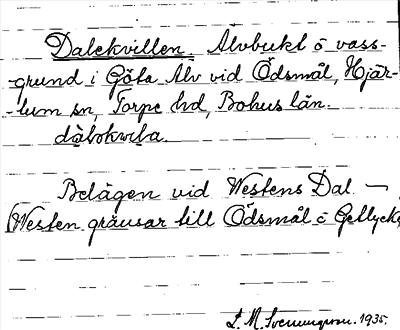 Dalekvillen. Älvbukt o vass-
-grund i Göta Älv vid Ödsmål, Hjär-
-tum sn, Torpe hd, Bohus län.
dàləkwıla.
Belägen vid Westens Dal —
(Westen gränsar till Ödsmål o Gellycke
L. M. Svenungsson. 1935.